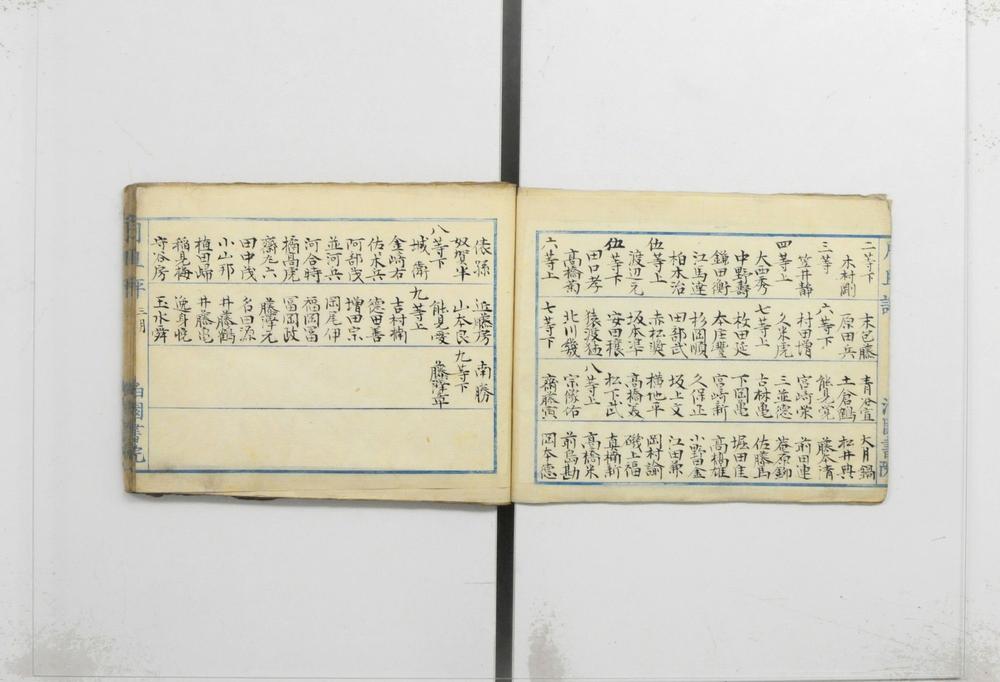 二等下
木村剛
三等
笠井静
四等上
中野壽
鎌田衡
江馬達
柏木治
伍等上
渡辺元
伍等下
田口孝
髙橋菊
六等上
末包藤
原田兵
六等下
村田増
久米虎
七等上
枚田延
杉岡順
田部武
坂本準
安田穰
猿渡猛
北川幾
七等下
青谷宣
土倉鶴
熊見常
宮崎栄
三並徳
下岡亀
宮崎新
久保正
坂上文
横地平
松下武
八等上
宗像佑
齋藤寅
大月鍋
松井典
藤本清
前田連
佐藤為
堀田庄
髙橋雄
小野田金
江田兼
岡村諭
磯上福
真楠新
髙橋米
前島勘
岡本徳
奴賀半
八等下
城衛
金崎右
佐木兵
阿部茂
並河兵
河合時
橋高虎
齋九六
田中茂
小山那
植田帰
稲見梅
守谷房
近藤芳
山本良
能見愛
九等上
吉村楠
徳田善
増田宗
岡尾伊
福岡冨
冨岡政
藤澤元
名田源
井藤鶴
井藤亀
逸身悦
玉水舜
南勝
九等下
藤野章
三月